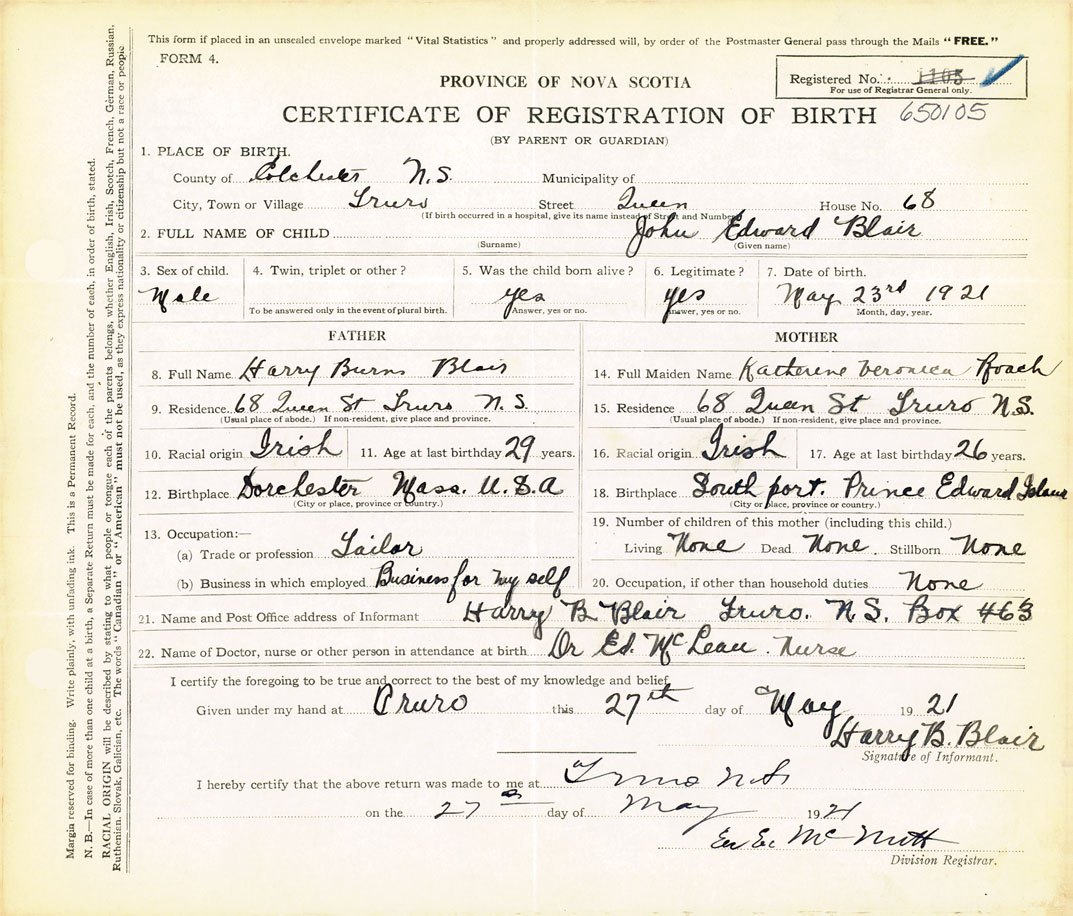 This form if placed in an unsealed envelope marked "Vital Statistics" and properly addressed will, by order of the Postmaster General pass through the Mails "FREE."
FORM 4.
Registered No. 1105
For use of Registrar General only.
PROVINCE OF NOVA SCOTIA
CERTIFICATE OF REGISTRATION OF BIRTH 650105
(BY PARENT OR GUARDIAN)
1. PLACE OF BIRTH.
County of Colchester N.S. Municipality of
City, Town or Village Truro Street Queen House No. 68
(If birth occurred in a hospital, give its name instead of Street and Number)
2. FULL NAME OF CHILD John Edward Blair
(Surname) (Given name)
3. Sex of child. 4. Twin, triplet or other? 5. Was the child born alive? 6. Legitimate? 7. Date of birth.
Male yes yes May 23rd 1921
To be answered only in the event of plural birth. Answer, yes or no. Answer, yes or no. Month, day, year.
FATHER
8. Full Name Harry Burns Blair
9. Residence 68 Queen St Truro N.S.
(Usual place of abode.) If non-resident, give place and province.
10. Racial origin Irish 11. Age at last birthday 29 years.
12. Birthplace Dorchester Mass. U.S.A
(City or place, province or country.)
13. Occupation:—
(a) Trade or profession Tailor
(b) Business in which employed Business for my self
MOTHER
14. Full Maiden Name Katherine Veronica Roach
15. Residence 68 Queen St Truro N.S.
(Usual place of abode.) If non-resident, give place and province.
16. Racial origin Irish 17. Age at last birthday 26 years.
18. Birthplace South port. Prince Edward Island
(City or place, province or country.)
19. Number of children of this mother (including this child.)
Living None Dead None Stillborn None
20. Occupation, if other than household duties None
21. Name and Post Office address of Informant Harry B Blair Truro. N.S. Box 463
22. Name of Doctor, nurse or other person in attendance at birth. Dr Ed. McLean. Nurse
I certify the foregoing to be true and correct to the best of my knowledge and belief
Given under my hand at Truro this 27th day of May 1921
Harry B. Blair
Signature of Informant.
I hereby certify that the above return was made to me at Truro N.S.
on the 27 day of May 1921
McNutt
Division Registrar.
Margin reserved for binding. Write plainly, with unfading ink. This is a Permanent Record.
N. B.—In case of more than one child at a birth, a Separate Return must be made for each, and the number of each, in order of birth, stated.
RACIAL ORIGIN will be described by stating to what people or tongue each of the parents belongs, whether English, Irish, Scotch, French, German, Russian,
Ruthenian, Slovak, Galician, etc. The words "Canadian" or "American" must not be used, as they express nationality or citizenship but not a race or people